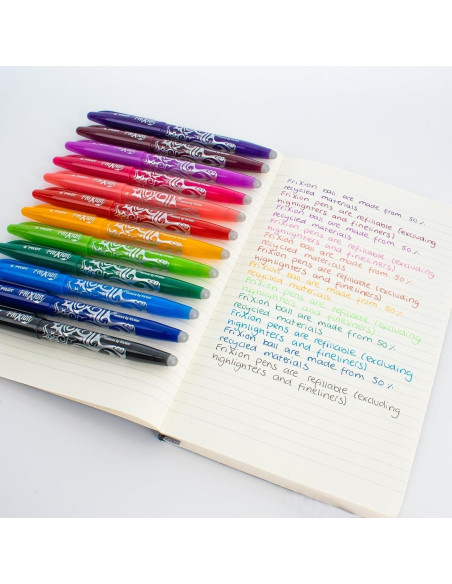 FriXion
PILOT
FriXion ball are made from 50%
recycled materials
FriXion pens are refillable (excluding
highlighters and fineliners)
FriXion ball are made from 50%
recycled materials
FriXion pens are refillable (excluding
highlighters and fineliners)
FriXion ball are made from 50%
recycled materials
FriXion pens are refillable (excluding
highlighters and fineliners)
FriXion ball are made from 50%
recycled materials
FriXion pens are refillable (excluding
highlighters and fineliners)
FriXion ball are made from 50%
recycled materials
FriXion pens are refillable (excluding
highlighters and fineliners)